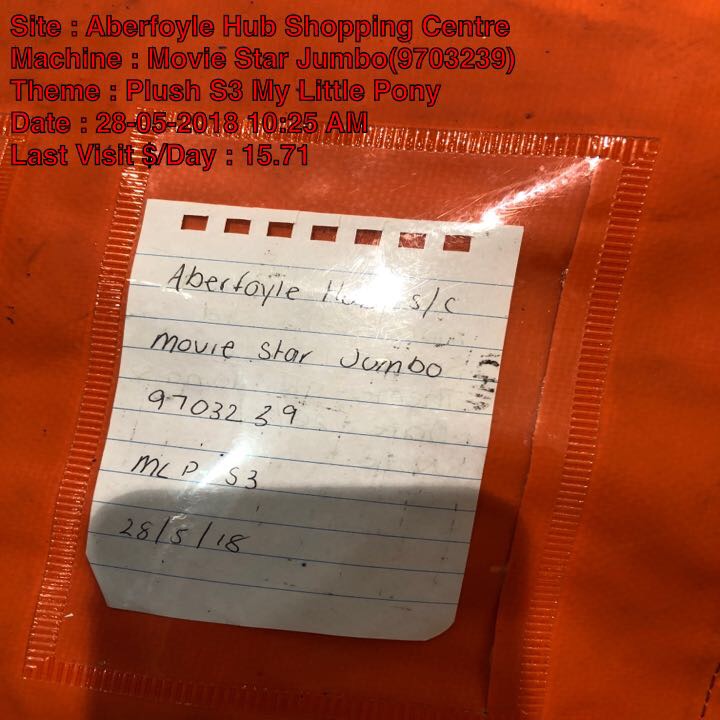 Site : Aberfoyle Hub Shopping Centre
Machine : Movie Star Jumbo(9703239)
Theme : Plush S3 My Little Pony
Date : 28-05-2018 10:25 AM
Last Visit $/Day : 15.71
Aberfoyle Hub S/C
Movie Star Jumbo
9703239
MLP S3
28/5/18